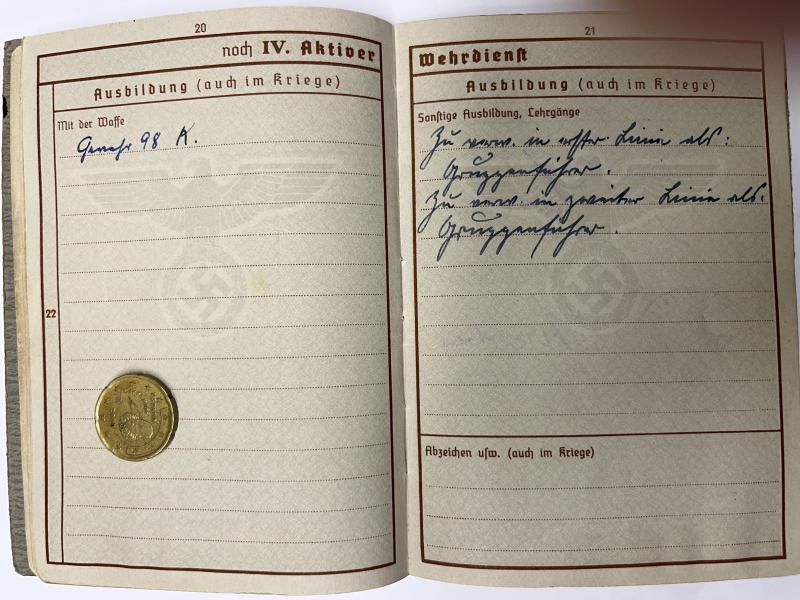 20
noch IV. Aktiver
Ausbildung (auch im Kriege)
Mit der Waffe
Gewehr 98 K.
22
21
Wehrdienst
Ausbildung (auch im Kriege)
Sonstige Ausbildung, Lehrgänge
Zu verw. in erster Linie als:
Gruppenführer.
Zu verw. in zweiter Linie als:
Gruppenführer.
Abzeichen usw. (auch im Kriege)